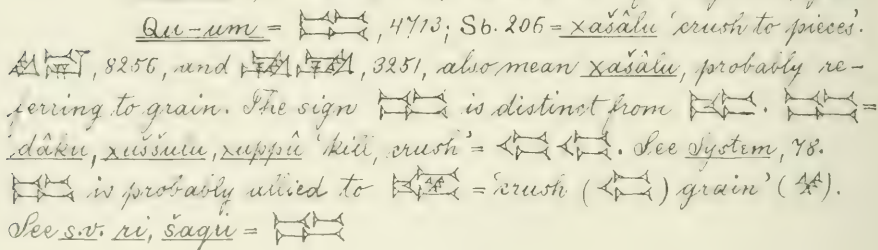 Qu-um = , 4713; Sb. 206 = xašâlu 'crush to pieces'.
, 8256, and , 3251, also mean xašâlu, probably re-
ferring to grain. The sign is distinct from . =
dâku, xuššulu, xuppû 'kill, crush' = . See System, 78.
is probably allied to = 'crush ( ) grain' ( ).
See s.v. ri, =